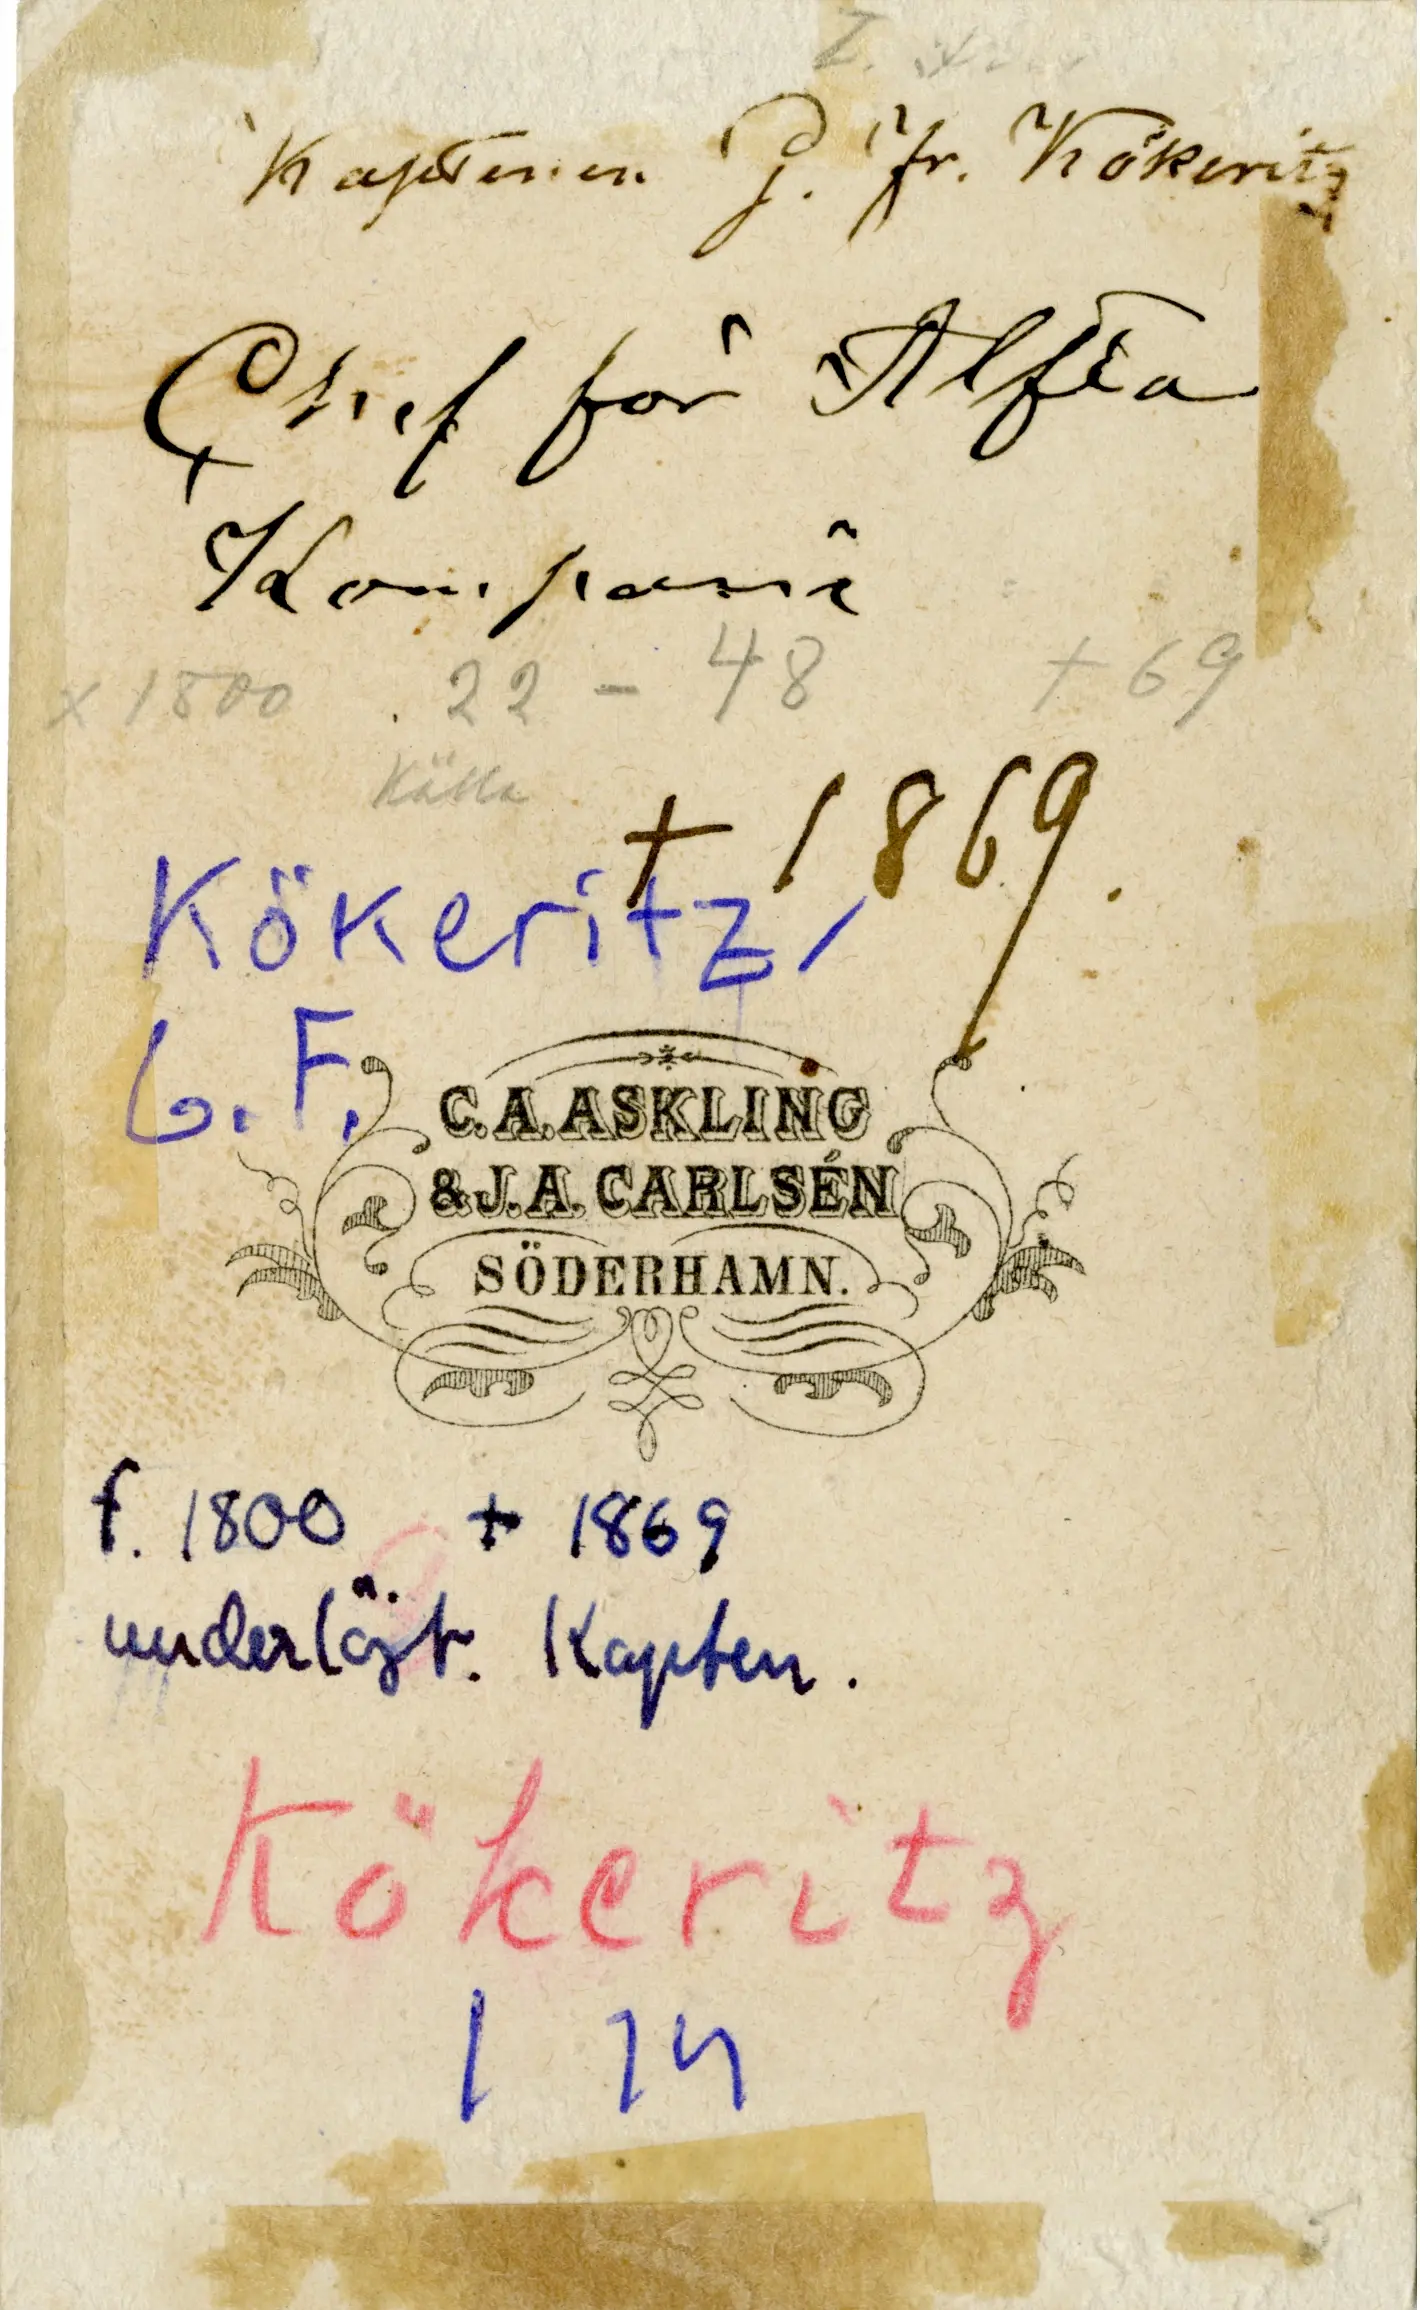 Kaptenen J. Fr. Kökeritz
Chef för Alfta
Kompani
x 1800 22 - 48 + 69
Källa
+ 1869.
Kökeritz,
G. F.
C. A. ASKLING
& J. A. CARLSÉN
SÖDERHAMN.
f. 1800 + 1869
underlöjt. Kapten.
Kökeritz